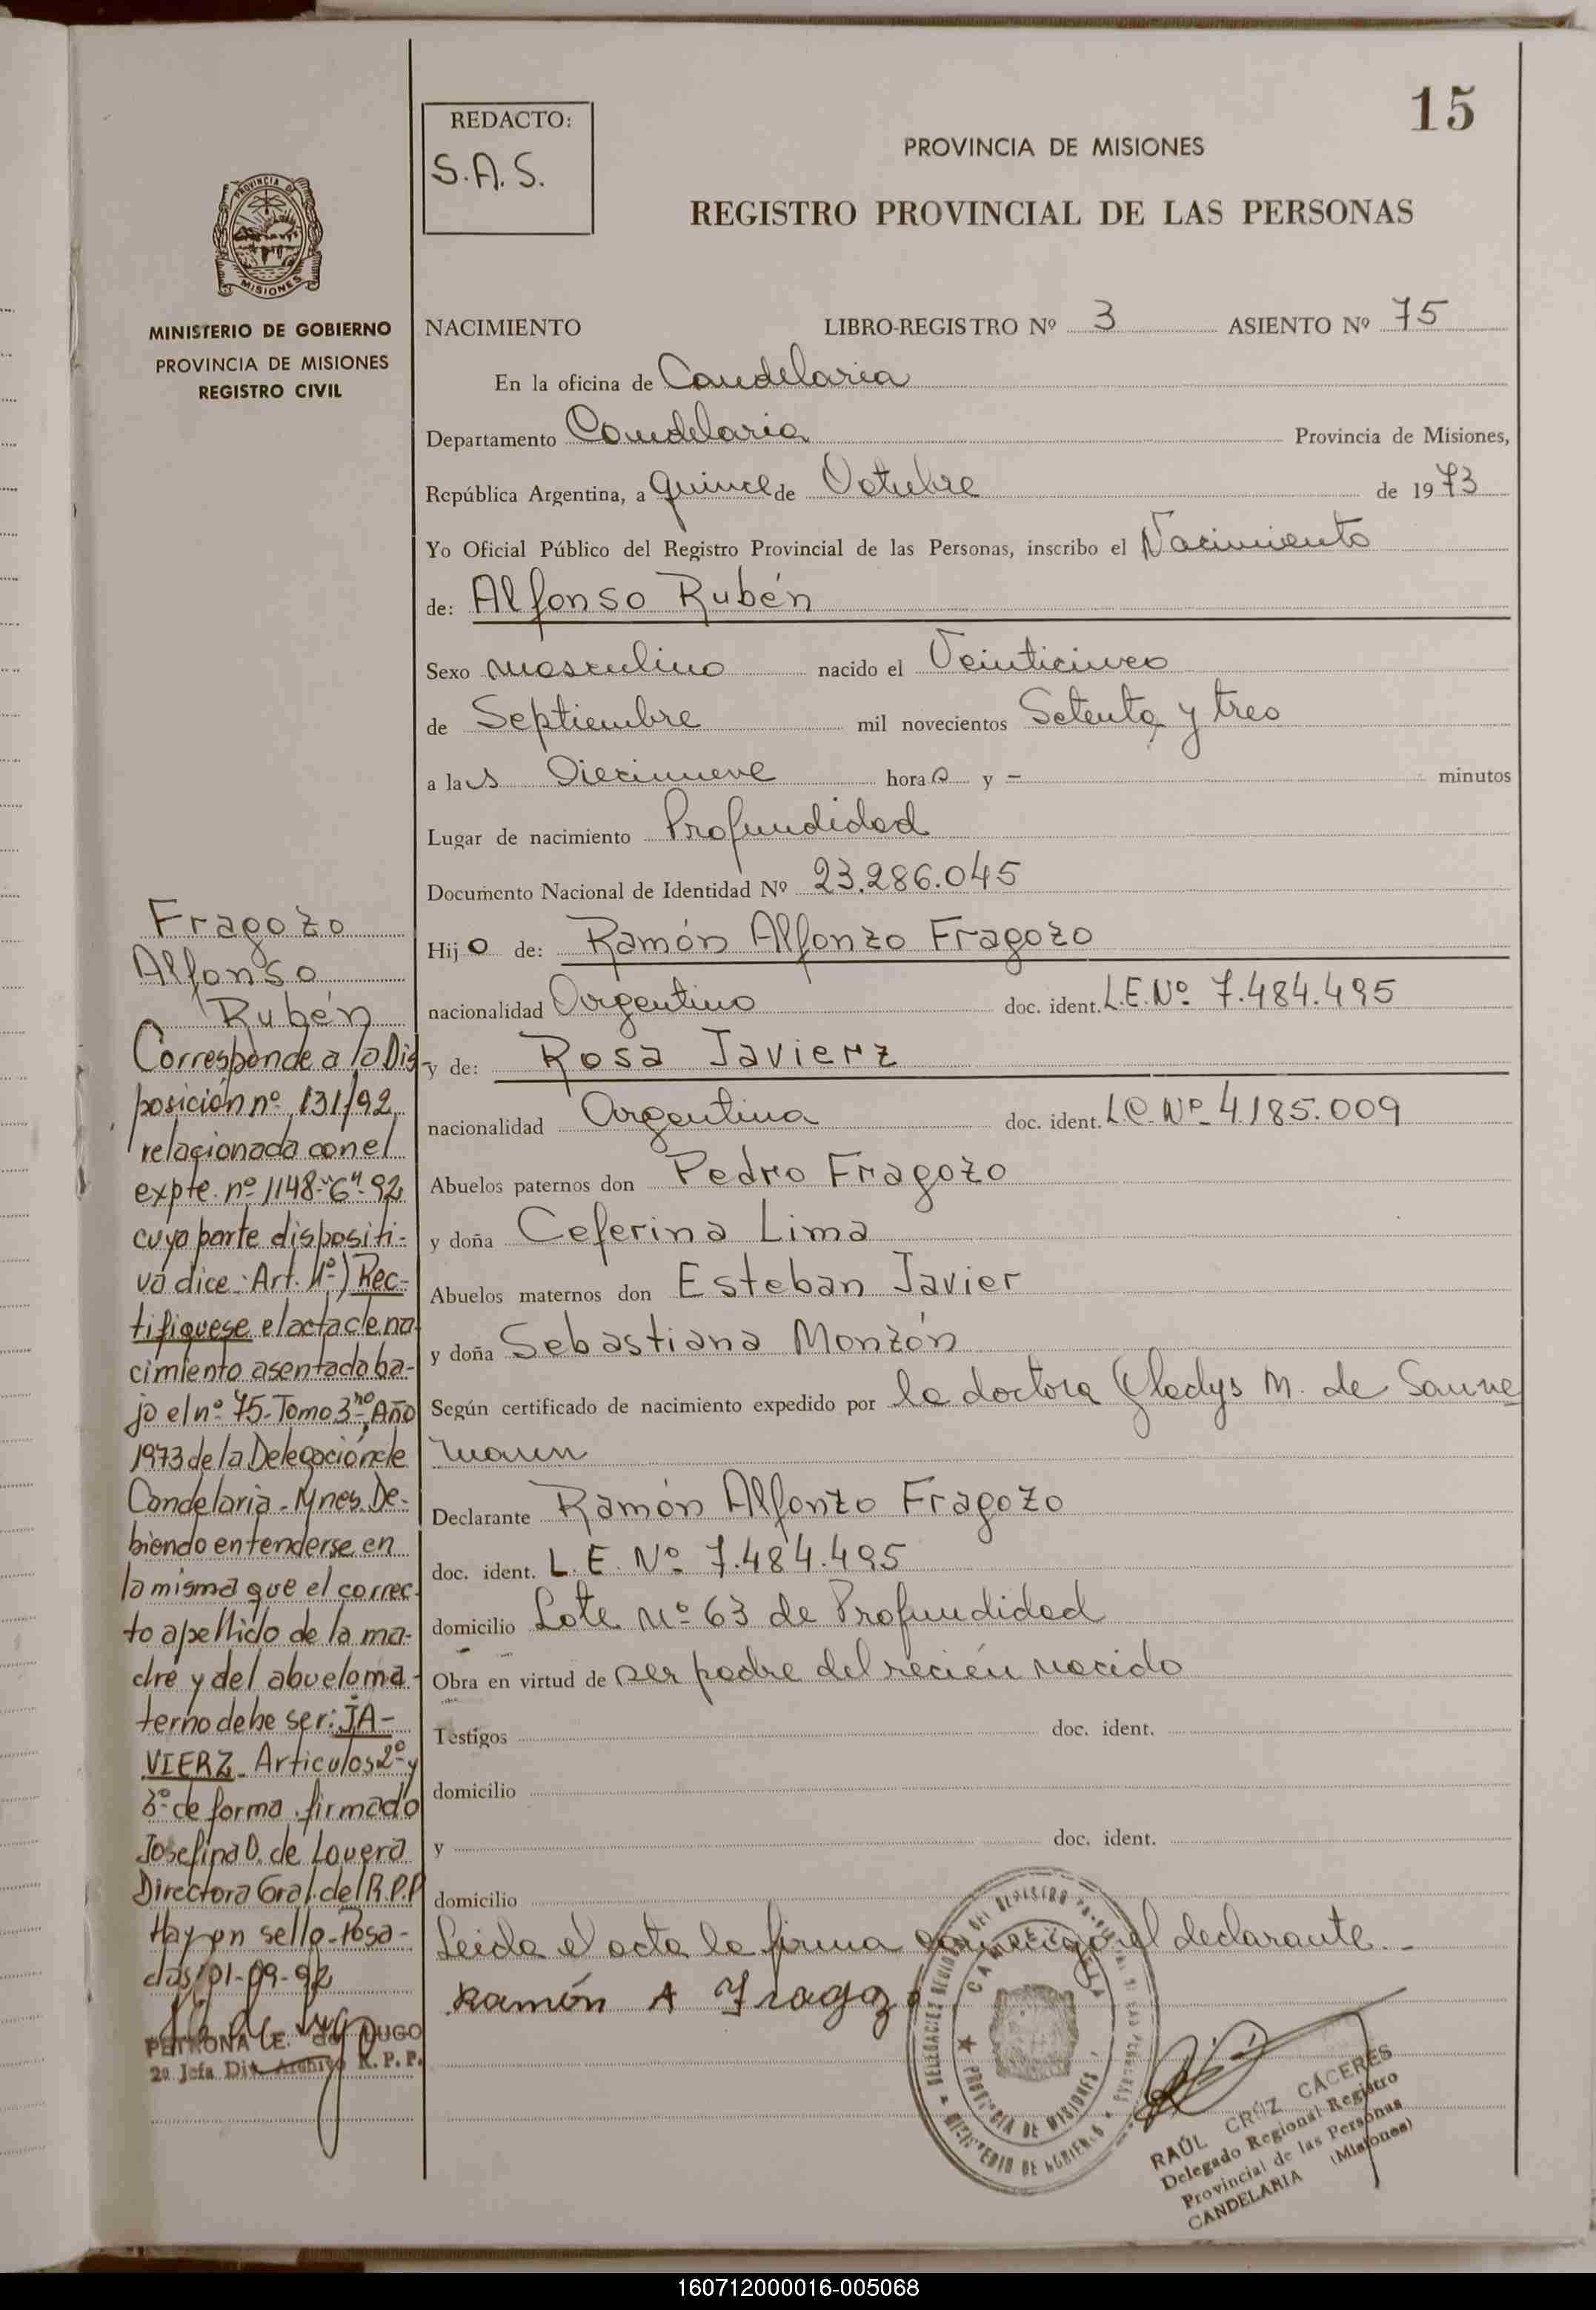 15
REDACTO:
S.A.S.
PROVINCIA DE MISIONES
REGISTRO PROVINCIAL DE LAS PERSONAS
PROVINCIA DE
MISIONES
MINISTERIO DE GOBIERNO
PROVINCIA DE MISIONES
REGISTRO CIVIL
NACIMIENTO LIBRO-REGISTRO Nº 3 ASIENTO Nº 75
En la oficina de Candelaria
Departamento Candelaria Provincia de Misiones,
República Argentina, a quince de Octubre de 1973
Yo Oficial Público del Registro Provincial de las Personas, inscribo el Nacimiento
de: Alfonso Rubén
Sexo masculino nacido el Veinticinco
de Septiembre mil novecientos Setenta y tres
a las Diecinueve horas y - minutos
Lugar de nacimiento Profundidad
Documento Nacional de Identidad Nº 23.286.045
Hijo de: Ramón Alfonzo Fragozo
nacionalidad Argentino doc. ident. L.E.Nº 7.484.495
y de: Rosa Javierz
nacionalidad Argentina doc. ident. L.C.Nº 4.185.009
Abuelos paternos don Pedro Fragozo
y doña Ceferina Lima
Abuelos maternos don Esteban Javier
y doña Sebastiana Monzón
Según certificado de nacimiento expedido por la doctora Gladys M. de Saune
mann
Declarante Ramón Alfonzo Fragozo
doc. ident. L.E. Nº 7.484.495
domicilio Lote Nº 63 de Profundidad
Obra en virtud de ser padre del recién nacido
Testigos doc. ident.
domicilio
y doc. ident.
domicilio
Leida el acta la firma conmigo el declarante.-
Ramón A Fragozo
Fragozo
Alfonso
Rubén
Corresponde a la Dis
posición nº 131/92
relacionada con el
expte. nº 1148-"G"-92
cuya parte dispositi-
va dice: Art. 1º) Rec-
tifiquese el acta de na
cimiento asentada ba-
jo el nº 75-Tomo 3ro, Año
1973 de la Delegación de
Candelaria-Mnes. De-
biendo entenderse en
la misma que el correc-
to apellido de la ma-
dre y del abuelo ma-
terno debe ser: JA-
VIERZ. Articulos 2º y
3º de forma. firmado
Josefina D. de Lovera
Directora Gral. del R.P.P
Hay un sello-Posa-
das, 01-09-92
PETRONA E. de LUGO
2a Jefa Dto. Archivo R.P.P.
CANDELARIA
PROVINCIA DE MISIONES
MINISTERIO DE GOBIERNO
RAÚL CRUZ CÁCERES
Delegado Regional Registro
Provincial de las Personas
CANDELARIA (Misiones)
160712000016-005068